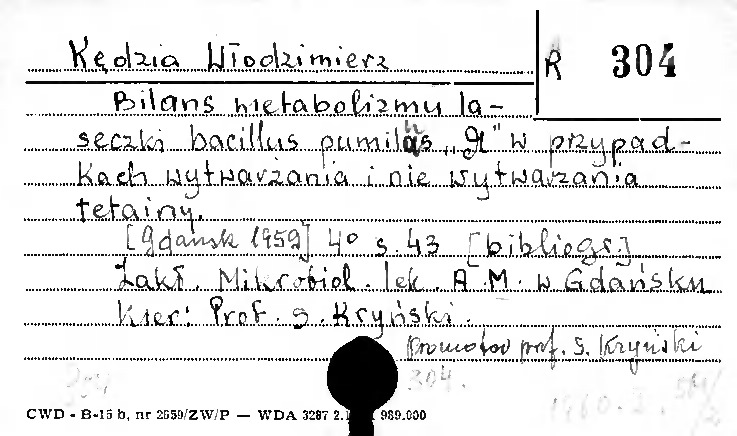 Kędzia Włodzimierz
R 304
Bilans metabolizmu la-
seczki bacillus pumilus „A" w przypad-
kach wytwarzania i nie wytwarzania
tetainy.
[Gdańsk 1959] 4° s. 43 [bibliogr.]
Zakł. Mikrobiol. lek. A.M. w Gdańsku
Kier: Prof. S. Kryński.
promotor prof. S. Kryński
304 304.
1960.I.
CWD - B-15 b, nr 2659/ZW/P — WDA 3287 2. 989.000